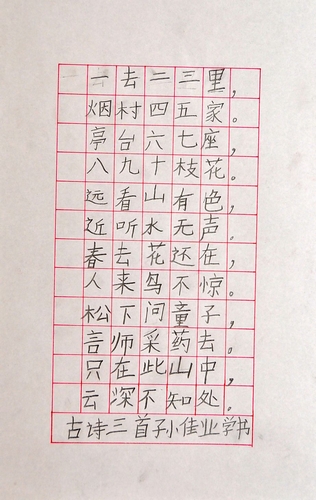 一去二三里，
烟村四五家。
亭台六七座，
八九十枝花。
远看山有色，
近听水无声。
春去花还在，
人来鸟不惊。
松下问童子，
言师采药去。
只在此山中，
云深不知处。
古诗三首子小佳业学书